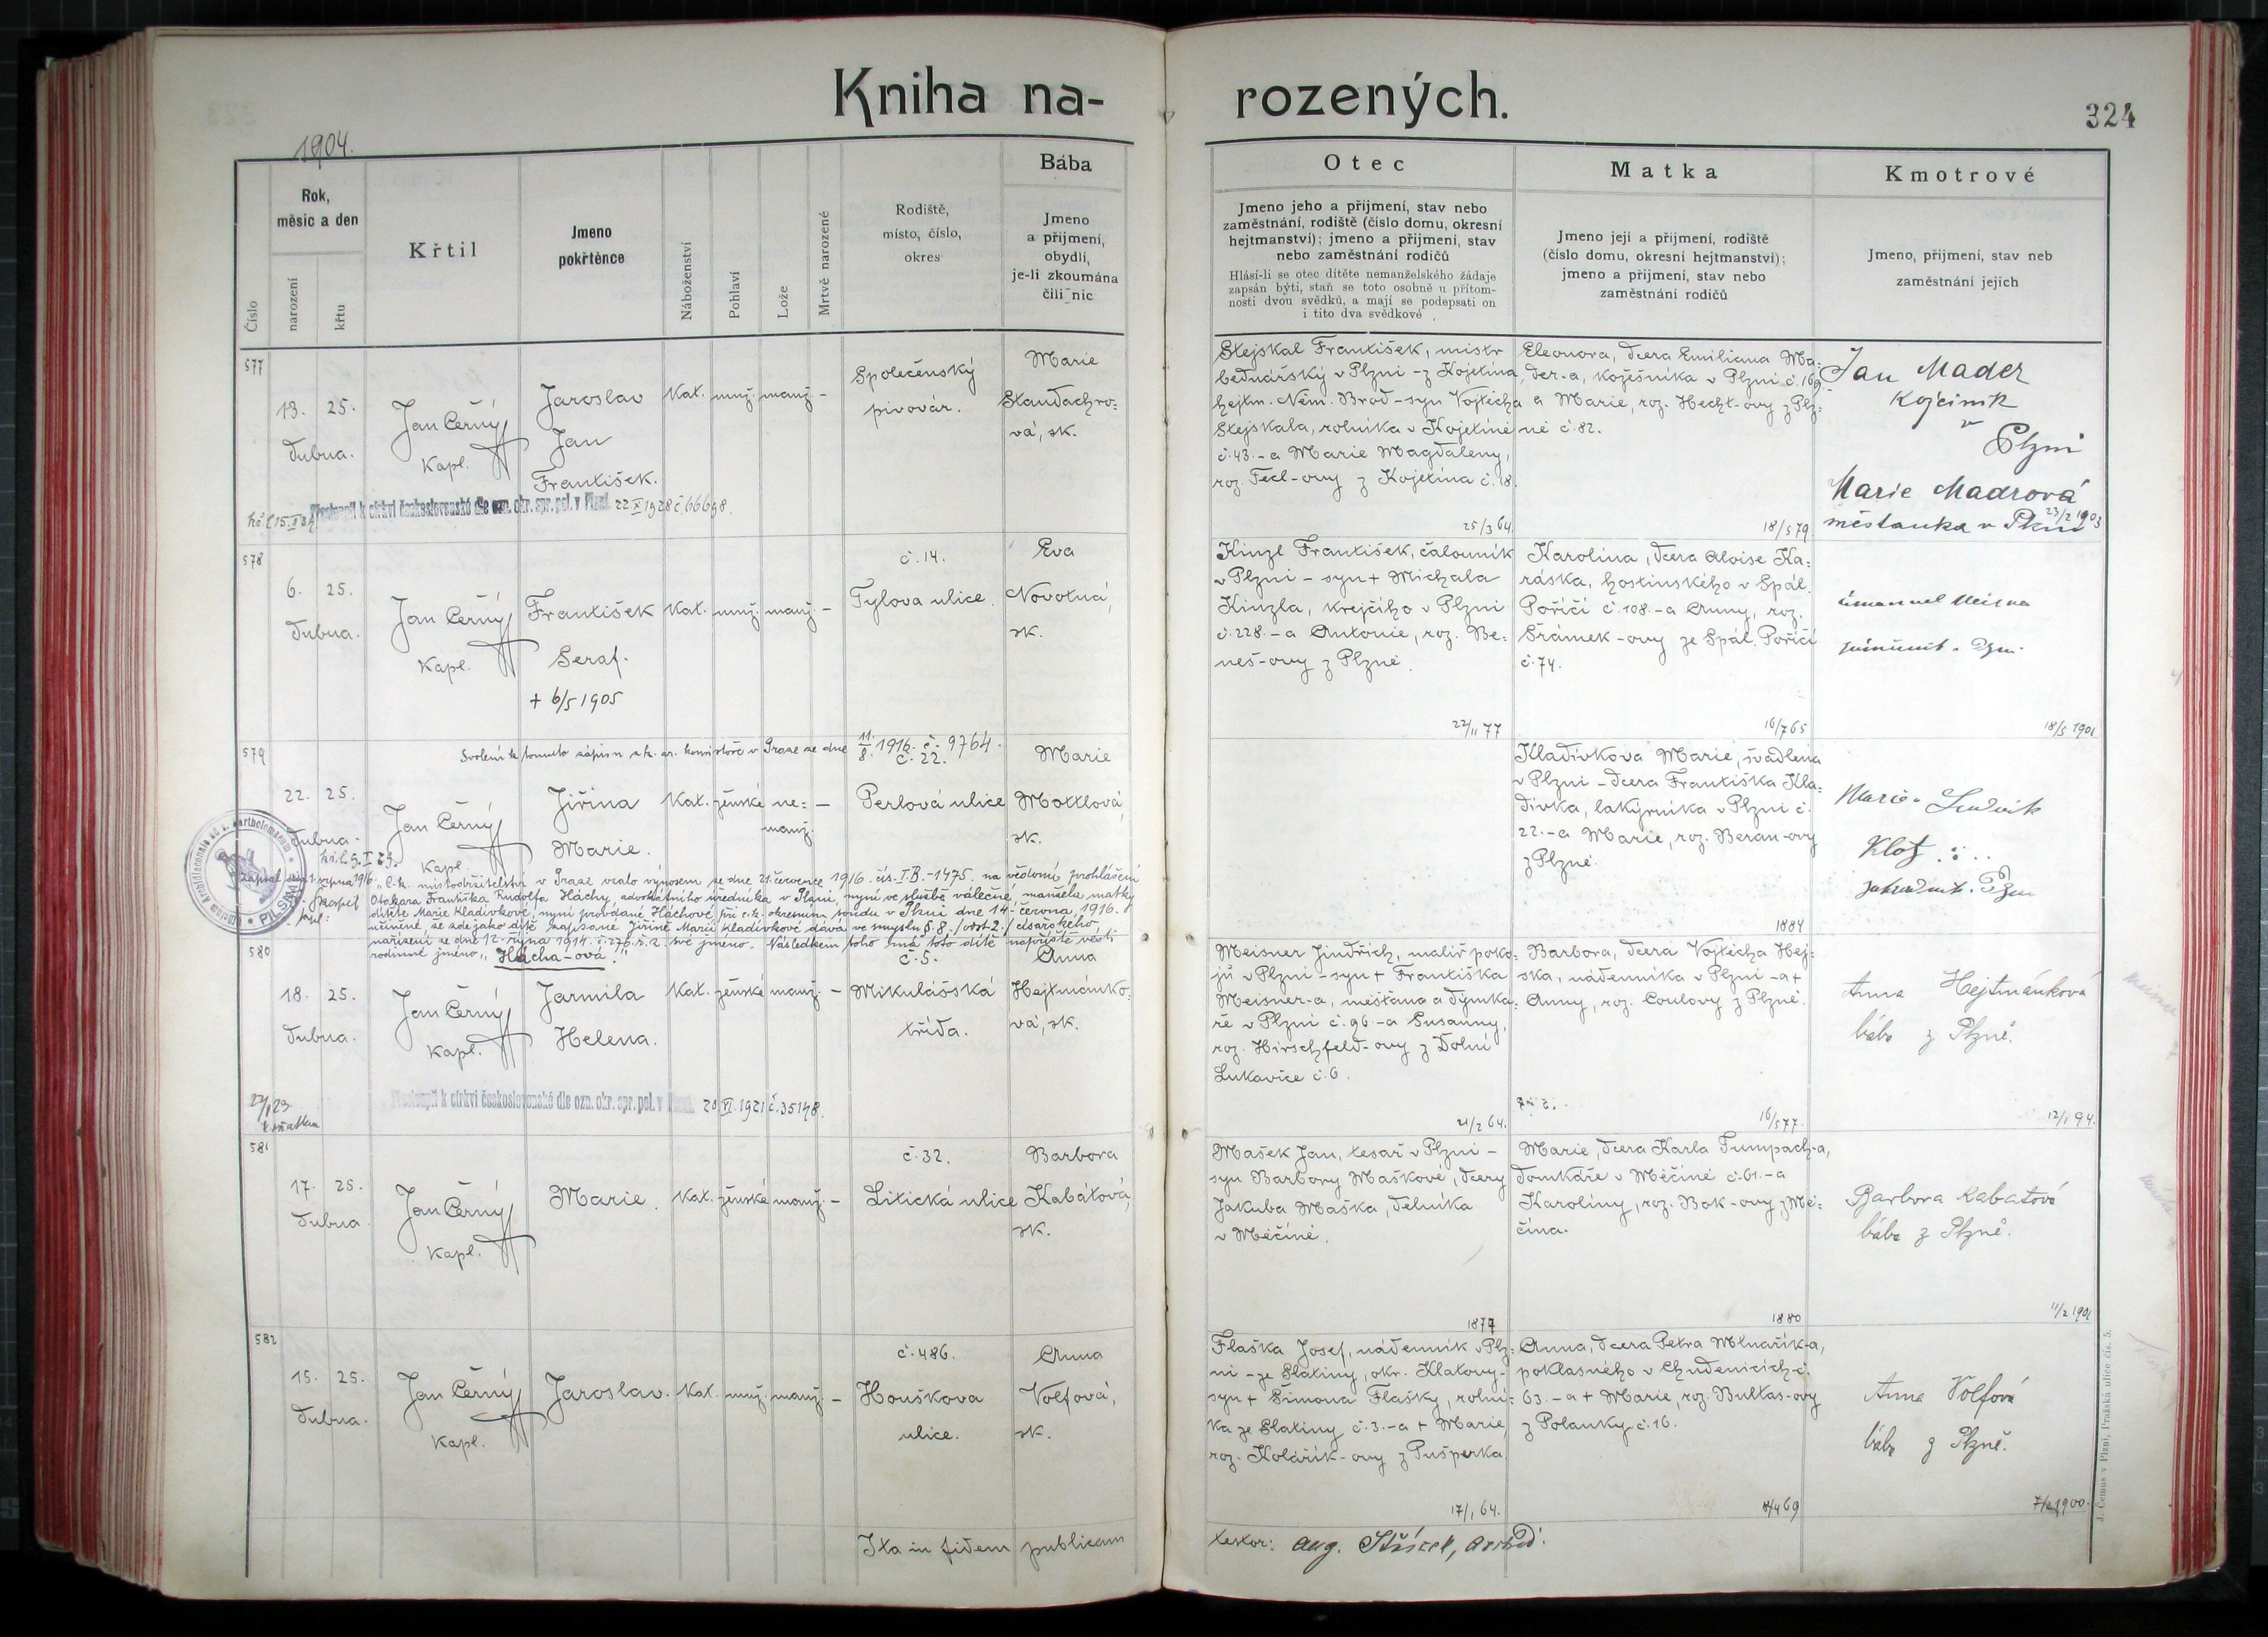 Kniha na-
rozených.
324
1904.
Číslo
Rok,
měsíc a den
narození
křtu
Křtil
Jmeno
pokřtěnce
Náboženství
Pohlaví
Lože
Mrtvě narozené
Rodiště,
místo, číslo,
okres
Bába
Jmeno
a přijmení,
obydlí,
je-li zkoumána
čili nic
Otec
Jmeno jeho a přijmení, stav nebo
zaměstnání, rodiště (číslo domu, okresní
hejtmanství); jmeno a přijmení, stav
nebo zaměstnání rodičů
Hlásí-li se otec dítěte nemanželského žádaje
zapsán býti, staň se toto osobně u přítom-
nosti dvou svědků, a mají se podepsati on
i tito dva svědkové
Matka
Jmeno její a přijmení, rodiště
(číslo domu, okresní hejtmanství);
jmeno a přijmení, stav nebo
zaměstnání rodičů
Kmotrové
Jmeno, přijmení, stav neb
zaměstnání jejich
577
13. 25.
dubna.
Jan Černý
Kapl.
Jaroslav
Jan
František.
Kat. muž. manž. -
Společenský
pivovár.
Marie
Štandachro-
vá, zk.
Stejskal František, mistr
bednářský v Plzni - z Kojetína,
hejtm. Něm. Brod - syn Vojtěcha
Stejskala, rolníka v Kojetíně
č. 43. - a Marie Magdaleny,
roz. Fecl-ovy z Kojetína č. 18.
25/3 64.
Eleonora, dcera Emiliana Ma-
der-a, kožešníka v Plzni č. 169.
a Marie, roz. Hecht-ovy z Plz-
ně č. 82.
18/5 79
Jan Mader
Kojeínk
v
Plzni
Marie Madrová
měšťanka v Plzni
23/2 1903
Přestoupil k církvi československé dle ozn. okr. spr. pol. v Plzni. 22 X 1928 č 66698.
578
6. 25.
dubna.
Jan Černý
Kapl.
František
Seraf.
+ 6/5 1905
Kat. muž. manž. -
č. 14.
Tylova ulice.
Eva
Novotná,
zk.
Kinzl František, čalouník
v Plzni - syn + Michala
Kinzla, krejčího v Plzni
č. 228. - a Antonie, roz. Be-
neš-ovy z Plzně.
22/11 77
Karolina, dcera Aloise Ka-
ráska, hostinského v Spál.
Poříčí č. 108. - a Anny, roz.
Šrámek-ovy ze Spál. Poříčí
č. 74.
16/7 65
18/5 1901
579
Svolení k tomuto zápisu z k. ar. konsistoře v Praze ze dne 11/8. 1916. č. 9764.
22. 25.
dubna.
Jan Černý
Kapl.
Jiřina
Marie.
Kat. ženské ne-
manž. -
č. 22.
Perlová ulice
Marie
Mottlová,
zk.
Kladívkova Marie, švadlena
v Plzni - dcera Františka Kla-
dívka, lakýrníka v Plzni č.
22. - a Marie, roz. Beran-ovy
z Plzně.
1884
Klotz
zahradník Plzn
zapsal dne 1. srpna 1916. „C. k. místodržitelství v Praze vzalo výnosem ze dne 21. července 1916. čís. I.B.-1475. na vědomí prohlášení
Otakara Františka Rudolfa Háchy, advokátního úředníka v Plzni, nyní ve službě válečné, manžela matky
dítěte Marie Kladívkové, nyní provdané Háchové, při c. k. okresním soudu v Plzni dne 14. června 1916.
učiněné, že zde jako dítě zapsané Jiřině Marii Kladívkové dává ve smyslu § 8. /odst. 2./ císařského
nařízení ze dne 12. října 1914. č. 276. ř. z. své jméno. Následkem toho má toto dítě napříště vésti
rodinné jméno „Hácha-ová."
580
18. 25.
dubna.
Jan Černý
Kapl.
Jarmila
Helena.
Kat. ženské manž. -
č. 5.
Mikulášská
třída.
Anna
Hejtmánko-
vá, zk.
Meisner Jindřich, malíř poko-
jů v Plzni - syn + Františka
Meisner-a, měšťana a dýmka-
ře v Plzni č. 96. - a Susanny,
roz. Hirschfeld-ovy z Dolní
Lukavice č. 6.
21/2 64.
Barbora, dcera Vojtěcha Hej-
ska, nádenníka v Plzni - a +
Anny, roz. Coulovy z Plzně.
16/5 77.
Anna Hejtmánková
bába z Plzně.
12/1 94.
Přestoupil k církvi československé dle ozn. okr. spr. pol. v Plzni. 20 VI. 1921 č. 35148.
581
17. 25.
dubna
Jan Černý
Kapl.
Marie.
Kat. ženské manž. -
č. 32.
Litická ulice
Barbora
Kabátová,
zk.
Mašek Jan, tesař v Plzni -
syn Barbory Maškové, dcery
Jakuba Maška, dělníka
v Měčíně.
1874
Marie, dcera Karla Tumpach-a,
domkáře v Měčíně č. 61. - a
Karolíny, roz. Bok-ovy z Mě-
čína.
1880
Barbora Kabatová
bába z Plzně.
11/2 1901
582
15. 25.
dubna.
Jan Černý
Kapl.
Jaroslav.
Kat. muž. manž. -
č. 486.
Houškova
ulice.
Anna
Volfová,
zk.
Flaška Josef, nádenník v Plz-
ni - ze Slatiny, okr. Klatovy -
syn + Šimona Flašky, rolní-
ka ze Slatiny č. 3. - a + Marie,
roz. Kolářík-ovy z Pušperka.
17/1 64.
Anna, dcera Petra Mlnařík-a,
poklasného v Chudenicích č.
63. - a + Marie, roz. Bultas-ovy
z Polanky č. 16.
Anna Volfová
bába z Plzně.
Ita in fidem publicam
testor: Aug.
J. Čemus v Plzni, Pražská ulice čís. 5.